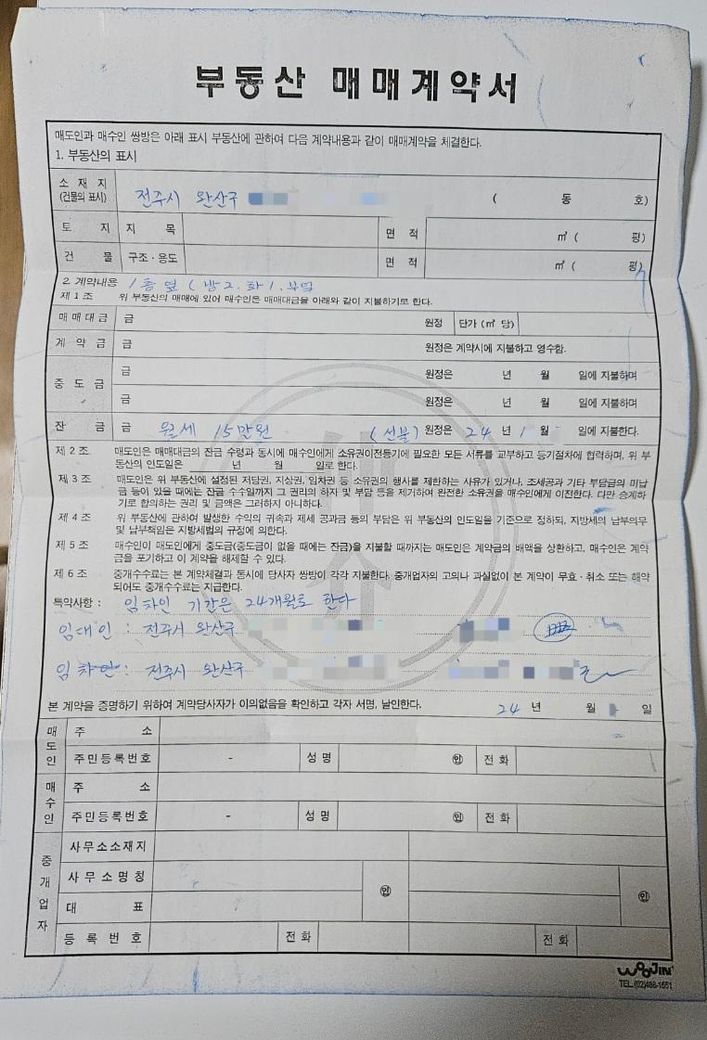 부동산 매매계약서
매도인과 매수인 쌍방은 아래 표시 부동산에 관하여 다음 계약내용과 같이 매매계약을 체결한다.
1. 부동산의 표시
소재지 (건물의 표시) 전주시 완산구 ( 동 호)
토지 지목 면적 ㎡ ( 평)
건물 구조·용도 면적 ㎡ ( 평)
2. 계약내용 1층 옆 ( 방2. 화1. 부엌
제1조 위 부동산의 매매에 있어 매수인은 매매대금을 아래와 같이 지불하기로 한다.
매매대금 금 원정 단가 (㎡ 당)
계약금 금 원정은 계약시에 지불하고 영수함.
중도금 금 원정은 년 월 일에 지불하며
금 원정은 년 월 일에 지불하며
잔금 금 월세 15만원 (선불) 원정은 24년 1 월 일에 지불한다.
제2조 매도인은 매매대금의 잔금 수령과 동시에 매수인에게 소유권이전등기에 필요한 모든 서류를 교부하고 등기절차에 협력하며, 위 부
동산의 인도일은 년 월 일로 한다.
제3조 매도인은 위 부동산에 설정된 저당권, 지상권, 임차권 등 소유권의 행사를 제한하는 사유가 있거나, 조세공과 기타 부담금의 미납
금 등이 있을 때에는 잔금 수수일까지 그 권리의 하자 및 부담 등을 제거하여 완전한 소유권을 매수인에게 이전한다. 다만 승계하
기로 합의하는 권리 및 금액은 그러하지 아니하다.
제4조 위 부동산에 관하여 발생한 수익의 귀속과 제세 공과금 등의 부담은 위 부동산의 인도일을 기준으로 정하되, 지방세의 납부의무
및 납부책임은 지방세법의 규정에 의한다.
제5조 매수인이 매도인에게 중도금(중도금이 없을 때에는 잔금)을 지불할 때까지는 매도인은 계약금의 배액을 상환하고, 매수인은 계약
금을 포기하고 이 계약을 해제할 수 있다.
제6조 중개수수료는 본 계약체결과 동시에 당사자 쌍방이 각각 지불한다. 중개업자의 고의나 과실없이 본 계약이 무효·취소 또는 해약
되어도 중개수수료는 지급한다.
특약사항 : 임차인 기간은 24개월로 한다
임대인 : 전주시 완산구
임차인 : 전주시 완산구
본 계약을 증명하기 위하여 계약당사자가 이의없음을 확인하고 각자 서명, 날인한다. 24년 월 일
매도인 주소
주민등록번호 - 성명 ㊞ 전화
매수인 주소
주민등록번호 - 성명 ㊞ 전화
중개업자 사무소소재지
사무소명칭 ㊞ ㊞
대표
등록번호 전화 전화
WOOJIN
TEL. (02)488-1551